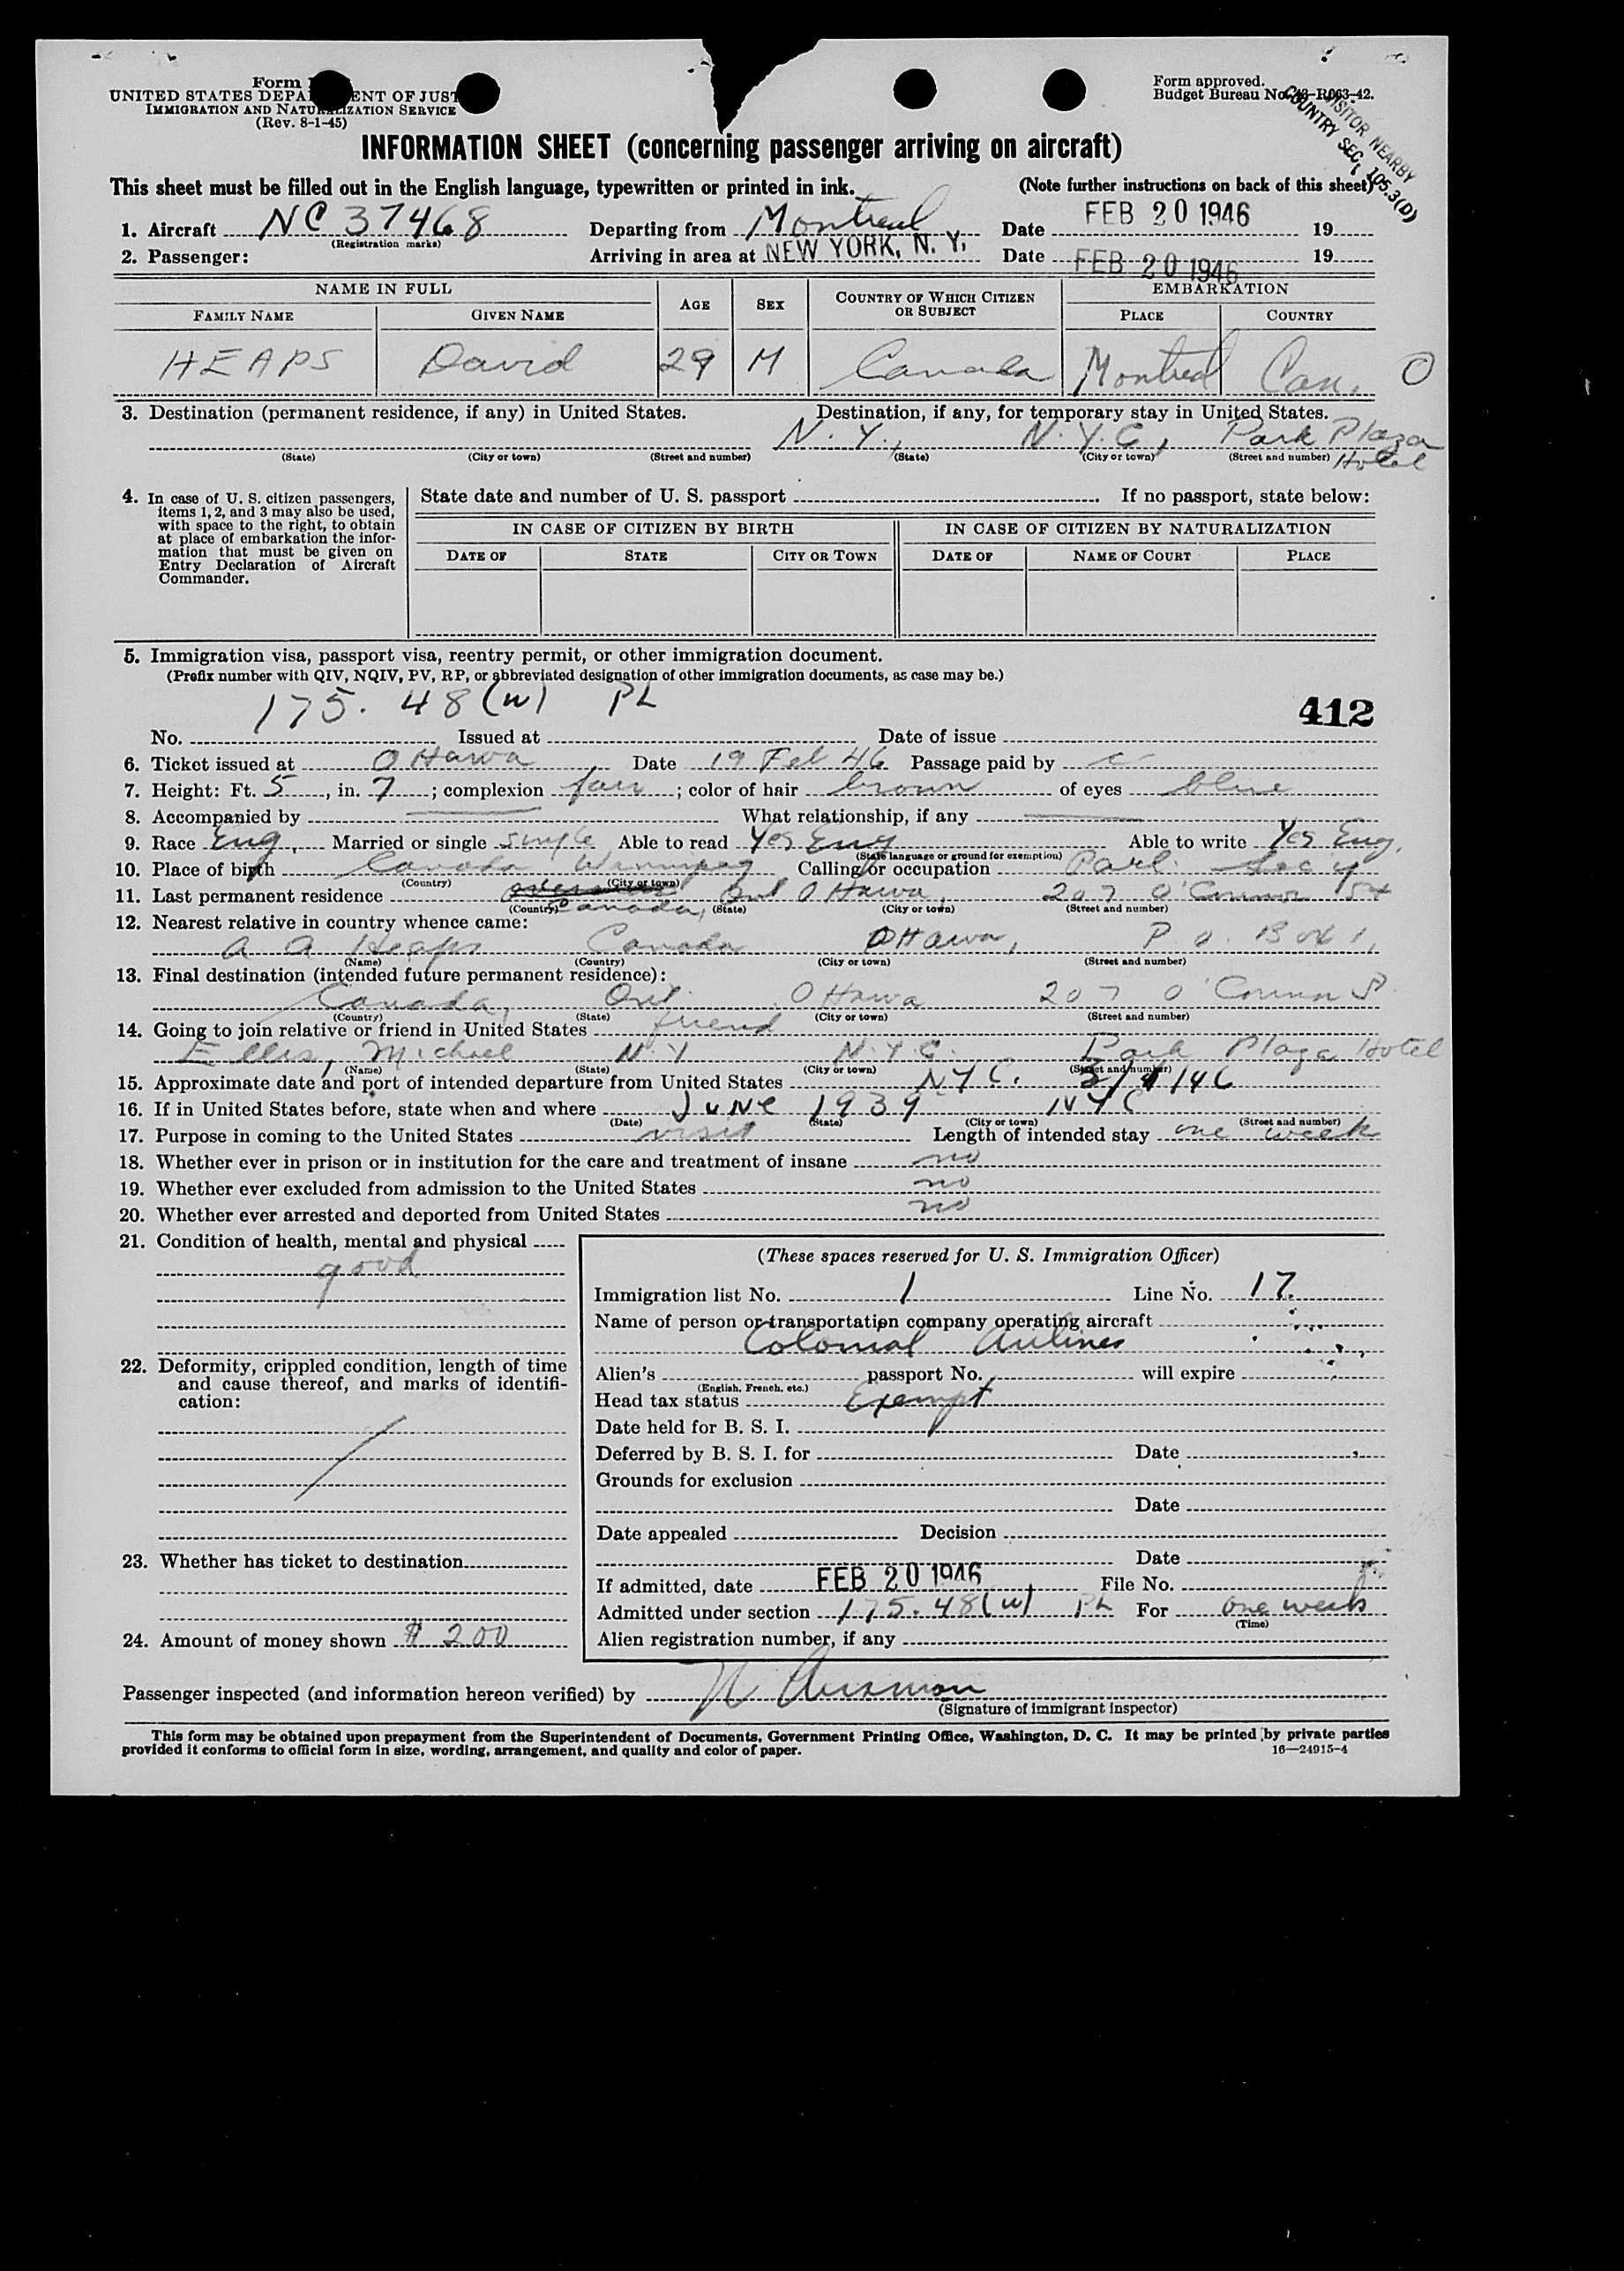 Form
UNITED STATES DEPA ENT OF JUST
IMMIGRATION AND NATURALIZATION SERVICE
(Rev. 8-1-45)
Form approved.
Budget Bureau No. 43-R063-42.
VISITOR NEARBY
COUNTRY SEC. 105.3(D)
INFORMATION SHEET (concerning passenger arriving on aircraft)
This sheet must be filled out in the English language, typewritten or printed in ink. (Note further instructions on back of this sheet)
1. Aircraft NC 37468 Departing from Montreal Date FEB 20 1946 19
(Registration marks)
2. Passenger: Arriving in area at NEW YORK, N. Y. Date FEB 20 1946 19
NAME IN FULL AGE SEX COUNTRY OF WHICH CITIZEN OR SUBJECT EMBARKATION
FAMILY NAME GIVEN NAME PLACE COUNTRY
HEAPS David 29 M Canada Montreal Can. O
3. Destination (permanent residence, if any) in United States. Destination, if any, for temporary stay in United States.
N. Y., N.Y.C., Park Plaza Hotel
(State) (City or town) (Street and number) (State) (City or town) (Street and number)
4. In case of U. S. citizen passengers,
items 1, 2, and 3 may also be used,
with space to the right, to obtain
at place of embarkation the infor-
mation that must be given on
Entry Declaration of Aircraft
Commander.
State date and number of U. S. passport . If no passport, state below:
IN CASE OF CITIZEN BY BIRTH IN CASE OF CITIZEN BY NATURALIZATION
DATE OF STATE CITY OR TOWN DATE OF NAME OF COURT PLACE
5. Immigration visa, passport visa, reentry permit, or other immigration document.
(Prefix number with QIV, NQIV, PV, RP, or abbreviated designation of other immigration documents, as case may be.)
175. 48(w) PL 412
No. Issued at Date of issue
6. Ticket issued at Ottawa Date 19 Feb 46 Passage paid by
7. Height: Ft. 5, in. 7; complexion fair; color of hair brown of eyes blue
8. Accompanied by What relationship, if any
9. Race Eng, Married or single single Able to read Yes Eng Able to write Yes Eng.
(State language or ground for exemption)
10. Place of birth Canada Winnipeg Calling or occupation Parl. Sec'y
(Country) (City or town)
11. Last permanent residence Canada, Ont Ottawa, 207 O'Connor St
(Country) (State) (City or town) (Street and number)
12. Nearest relative in country whence came:
A A Heaps Canada Ottawa, P.O. Box 1,
(Name) (Country) (City or town) (Street and number)
13. Final destination (intended future permanent residence):
Canada, Ont. Ottawa 207 O'Connor St
(Country) (State) (City or town) (Street and number)
14. Going to join relative or friend in United States friend
Ellis, Michael N.Y N.Y.C. Park Plaza Hotel
(Name) (State) (City or town) (Street and number)
15. Approximate date and port of intended departure from United States NYC.
16. If in United States before, state when and where June 1939 NYC
(Date) (State) (City or town) (Street and number)
17. Purpose in coming to the United States visit Length of intended stay one week
18. Whether ever in prison or in institution for the care and treatment of insane no
19. Whether ever excluded from admission to the United States no
20. Whether ever arrested and deported from United States no
21. Condition of health, mental and physical
good
22. Deformity, crippled condition, length of time
and cause thereof, and marks of identifi-
cation:
23. Whether has ticket to destination
24. Amount of money shown $ 200
(These spaces reserved for U. S. Immigration Officer)
Immigration list No. 1 Line No. 17.
Name of person or transportation company operating aircraft
Colonial Airlines
Alien's passport No. will expire
(English, French, etc.)
Head tax status Exempt
Date held for B. S. I.
Deferred by B. S. I. for Date
Grounds for exclusion
Date
Date appealed Decision
Date
If admitted, date FEB 20 1946 File No.
Admitted under section 175.48(w) PL For one week
(Time)
Alien registration number, if any
Passenger inspected (and information hereon verified) by
(Signature of immigrant inspector)
This form may be obtained upon prepayment from the Superintendent of Documents, Government Printing Office, Washington, D. C. It may be printed by private parties
provided it conforms to official form in size, wording, arrangement, and quality and color of paper. 16—24915-4